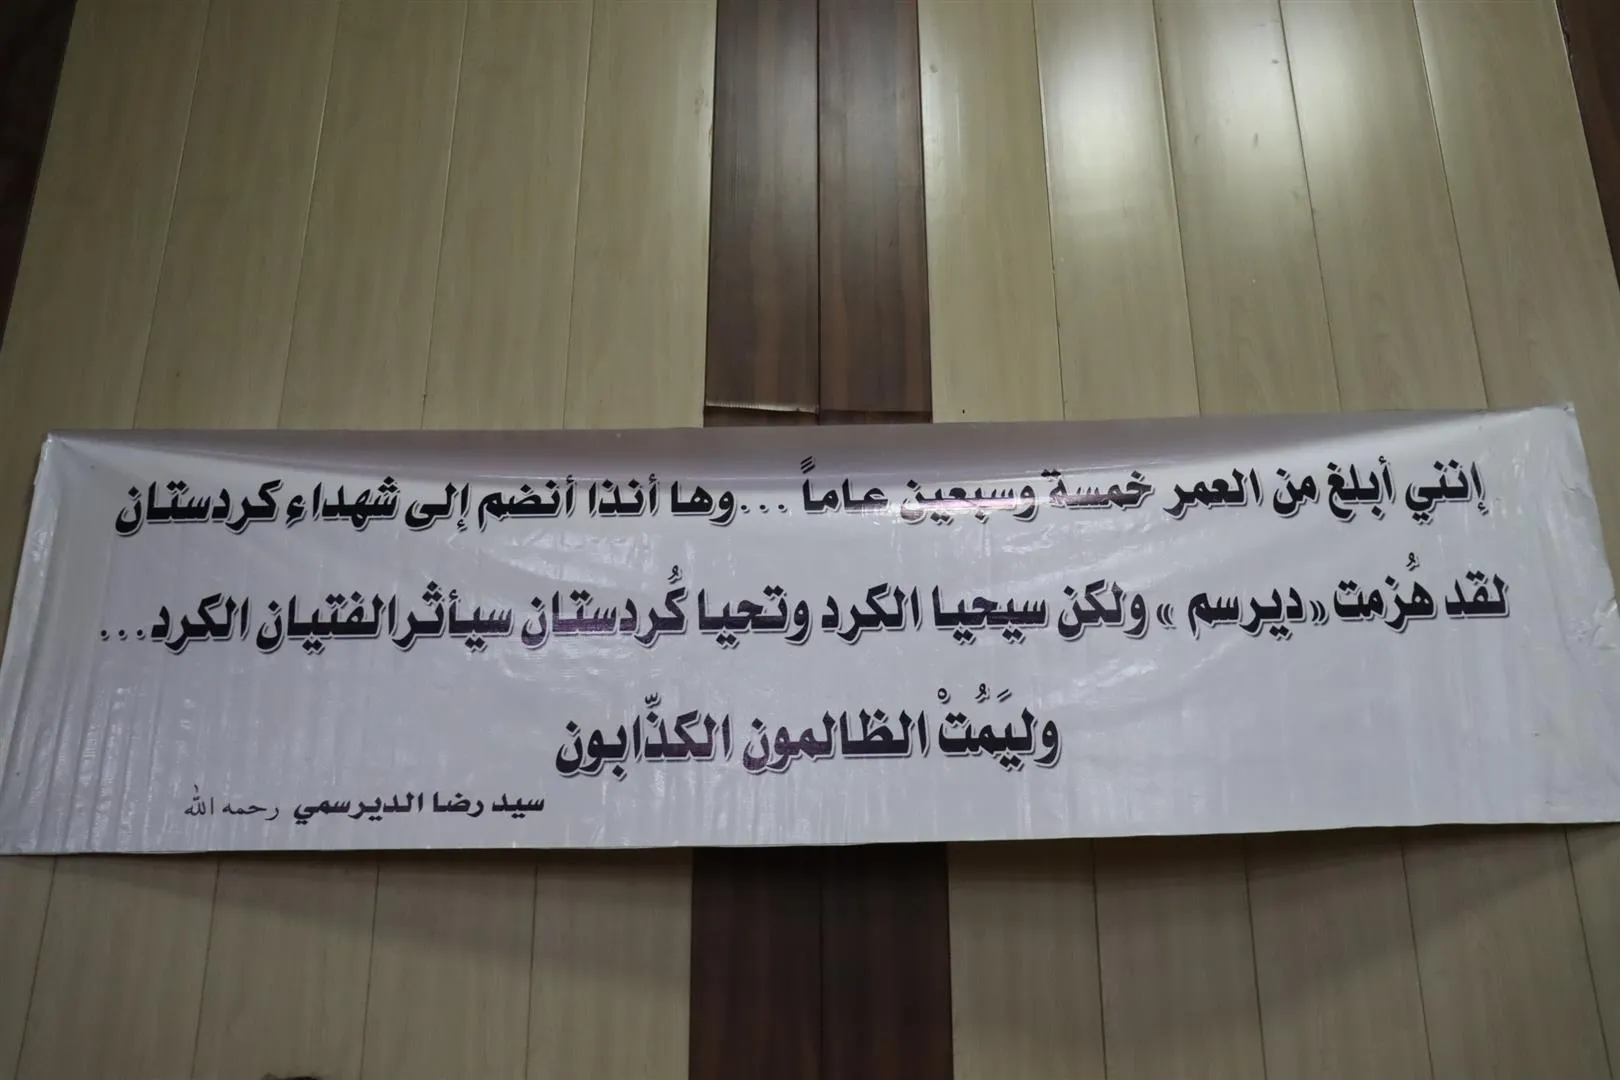 إنني أبلغ من العمر خمسة وسبعين عاماً ...وها أنذا أنضم إلى شهداء كردستان
لقد هُزمت «ديرسم» ولكن سيحيا الكرد وتحيا كُردستان سيأثر الفتيان الكرد...
وليَمُتْ الظالمون الكذّابون
سيد رضا الديرسمي رحمه الله